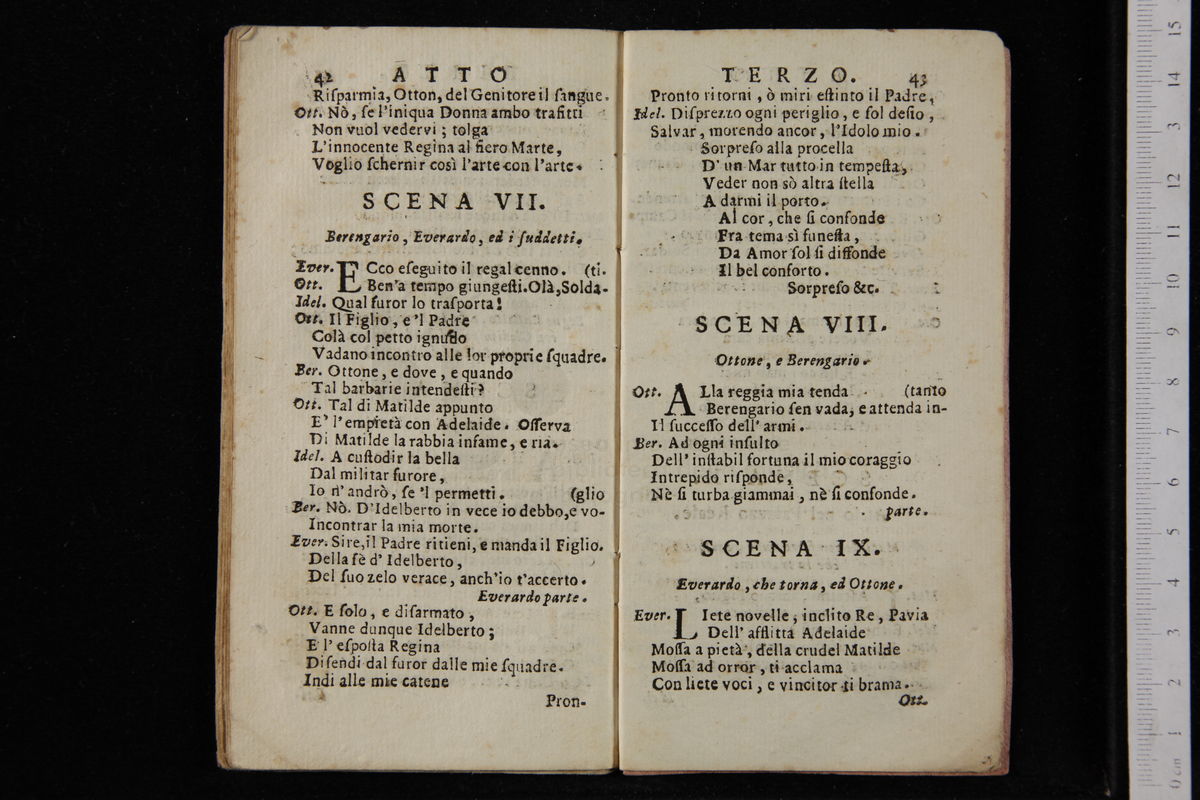 42 ATTO
Riſparmia, Otton, del Genitore il ſangue.
Ott. Nò, ſe l'iniqua Donna ambo trafitti
Non vuol vedervi; tolga
L'innocente Regina al fiero Marte,
Voglio ſchernir così l'arte con l'arte.
SCENA VII.
Berengario, Everardo, ed i ſuddetti.
Ever. ECco eſeguito il regal cenno. (ti.
Ott. Ben'a tempo giungeſti. Olà, Solda-
Idel. Qual furor lo traſporta!
Ott. Il Figlio, e'l Padre
Colà col petto ignudo
Vadano incontro alle lor proprie ſquadre.
Ber. Ottone, e dove, e quando
Tal barbarie intendeſti?
Ott. Tal di Matilde appunto
E' l'empietà con Adelaide. Oſſerva
Di Matilde la rabbia infame, e ria.
Idel. A cuſtodir la bella
Dal militar furore,
Io n'andrò, ſe 'l permetti. (glio
Ber. Nò. D'Idelberto in vece io debbo, e vo-
Incontrar la mia morte.
Ever. Sire, il Padre ritieni, e manda il Figlio.
Della fè d' Idelberto,
Del ſuo zelo verace, anch'io t'accerto.
Everardo parte.
Ott. E ſolo, e diſarmato,
Vanne dunque Idelberto;
E l' eſpoſta Regina
Difendi dal furor dalle mie ſquadre.
Indi alle mie catene
Pron-
TERZO. 43
Pronto ritorni, ò miri eſtinto il Padre,
Idel. Diſprezzo ogni periglio, e ſol deſio,
Salvar, morendo ancor, l'Idolo mio.
Sorpreſo alla procella
D' un Mar tutto in tempeſta,
Veder non sò altra ſtella
A darmi il porto.
Al cor, che ſi confonde
Fra tema sì funeſta,
Da Amor ſol ſi diffonde
Il bel conforto.
Sorpreſo &c.
SCENA VIII.
Ottone, e Berengario.
Ott. ALla reggia mia tenda (tanto
Berengario ſen vada, e attenda in-
Il ſucceſſo dell' armi.
Ber. Ad ogni inſulto
Dell' inſtabil fortuna il mio coraggio
Intrepido riſponde,
Nè ſi turba giammai, nè ſi confonde.
parte.
SCENA IX.
Everardo, che torna, ed Ottone.
Ever. LIete novelle, inclito Re, Pavia
Dell' afflitta Adelaide
Moſſa a pietà, della crudel Matilde
Moſſa ad orror, ti acclama
Con liete voci, e vincitor ti brama.
Ott.
0 cm 1 2 3 4 5 6 7 8 9 10 11 12 13 14 15